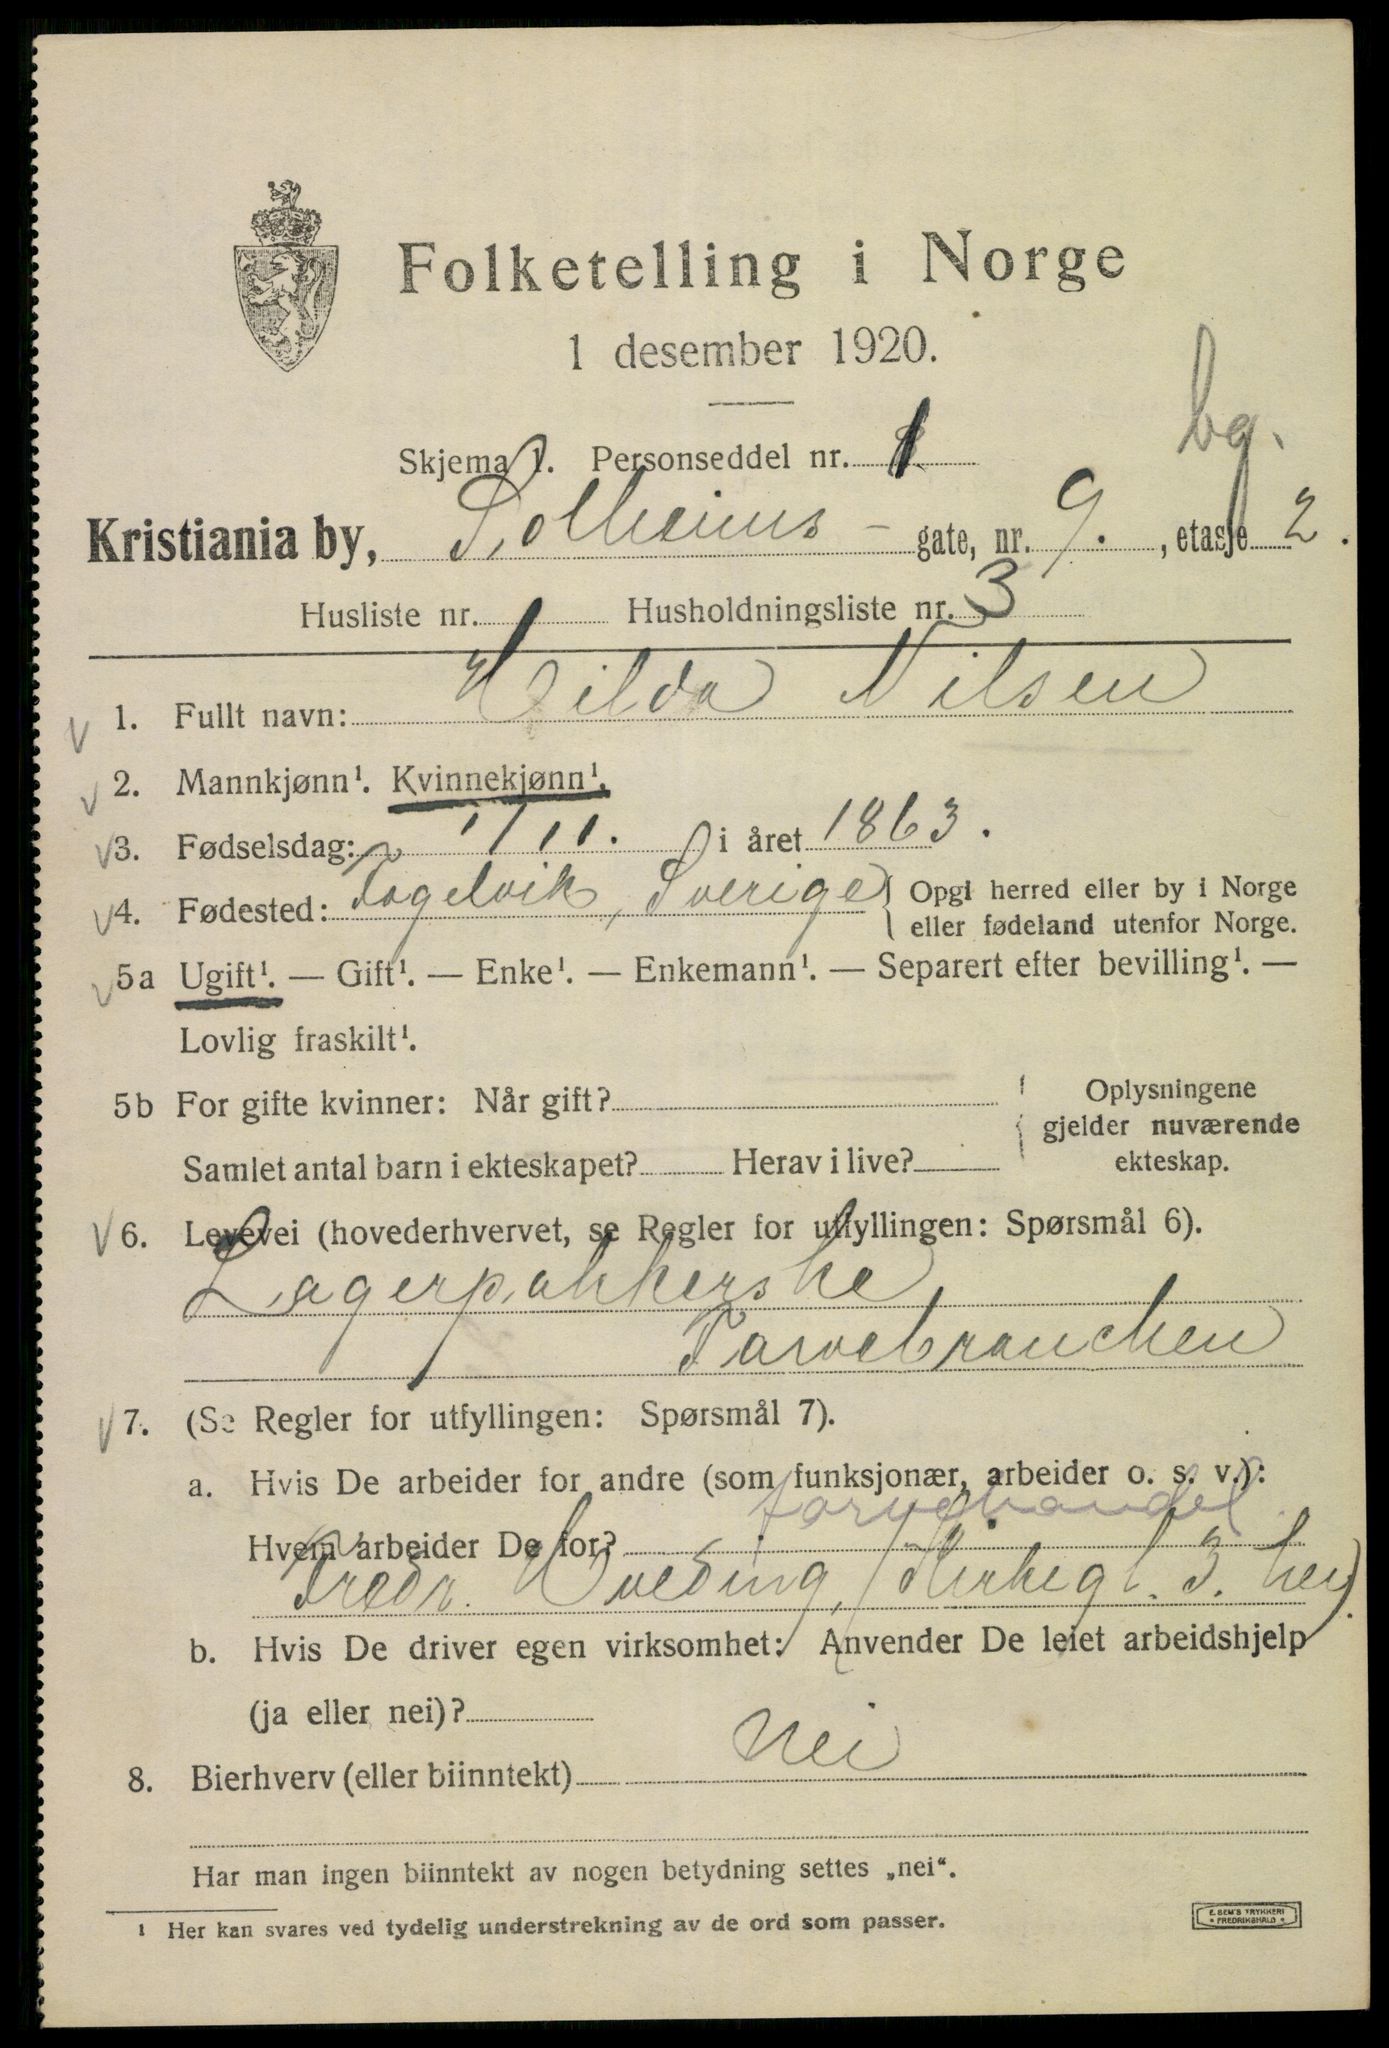 Folketelling i Norge
1 desember 1920.
bg.
Skjema 1. Personseddel nr. 1
Kristiania by, Solheims - gate, nr. 9. , etasje 2.
Husliste nr. 1 Husholdningsliste nr. 3
1. Fullt navn: Hilda Nilsen
2. Mannkjønn¹. Kvinnekjønn¹.
3. Fødselsdag: 1/11. i året 1863.
4. Fødested: Fogelvik, Sverige { Opgi herred eller by i Norge
eller fødeland utenfor Norge.
5a Ugift¹. — Gift¹. — Enke¹. — Enkemann¹. — Separert efter bevilling¹. —
Lovlig fraskilt¹.
5b For gifte kvinner: Når gift? { Oplysningene
gjelder nuværende
ekteskap.
Samlet antal barn i ekteskapet? Herav i live?
6. Levevei (hovederhvervet, se Regler for utfyllingen: Spørsmål 6).
Lagerpakkerske
Farvebranchen
7. (Se Regler for utfyllingen: Spørsmål 7).
a. Hvis De arbeider for andre (som funksjonær, arbeider o. s. v.):
farvehandel
Hvem arbeider De for?
Fredr. Hveding, (Kirkegt. 3. her)
b. Hvis De driver egen virksomhet: Anvender De leiet arbeidshjelp
(ja eller nei)?
8. Bierhverv (eller biinntekt) Nei
Har man ingen biinntekt av nogen betydning settes „nei“.
1 Her kan svares ved tydelig understrekning av de ord som passer.
E. SEM'S TRYKKERI
FREDRIKSHALD